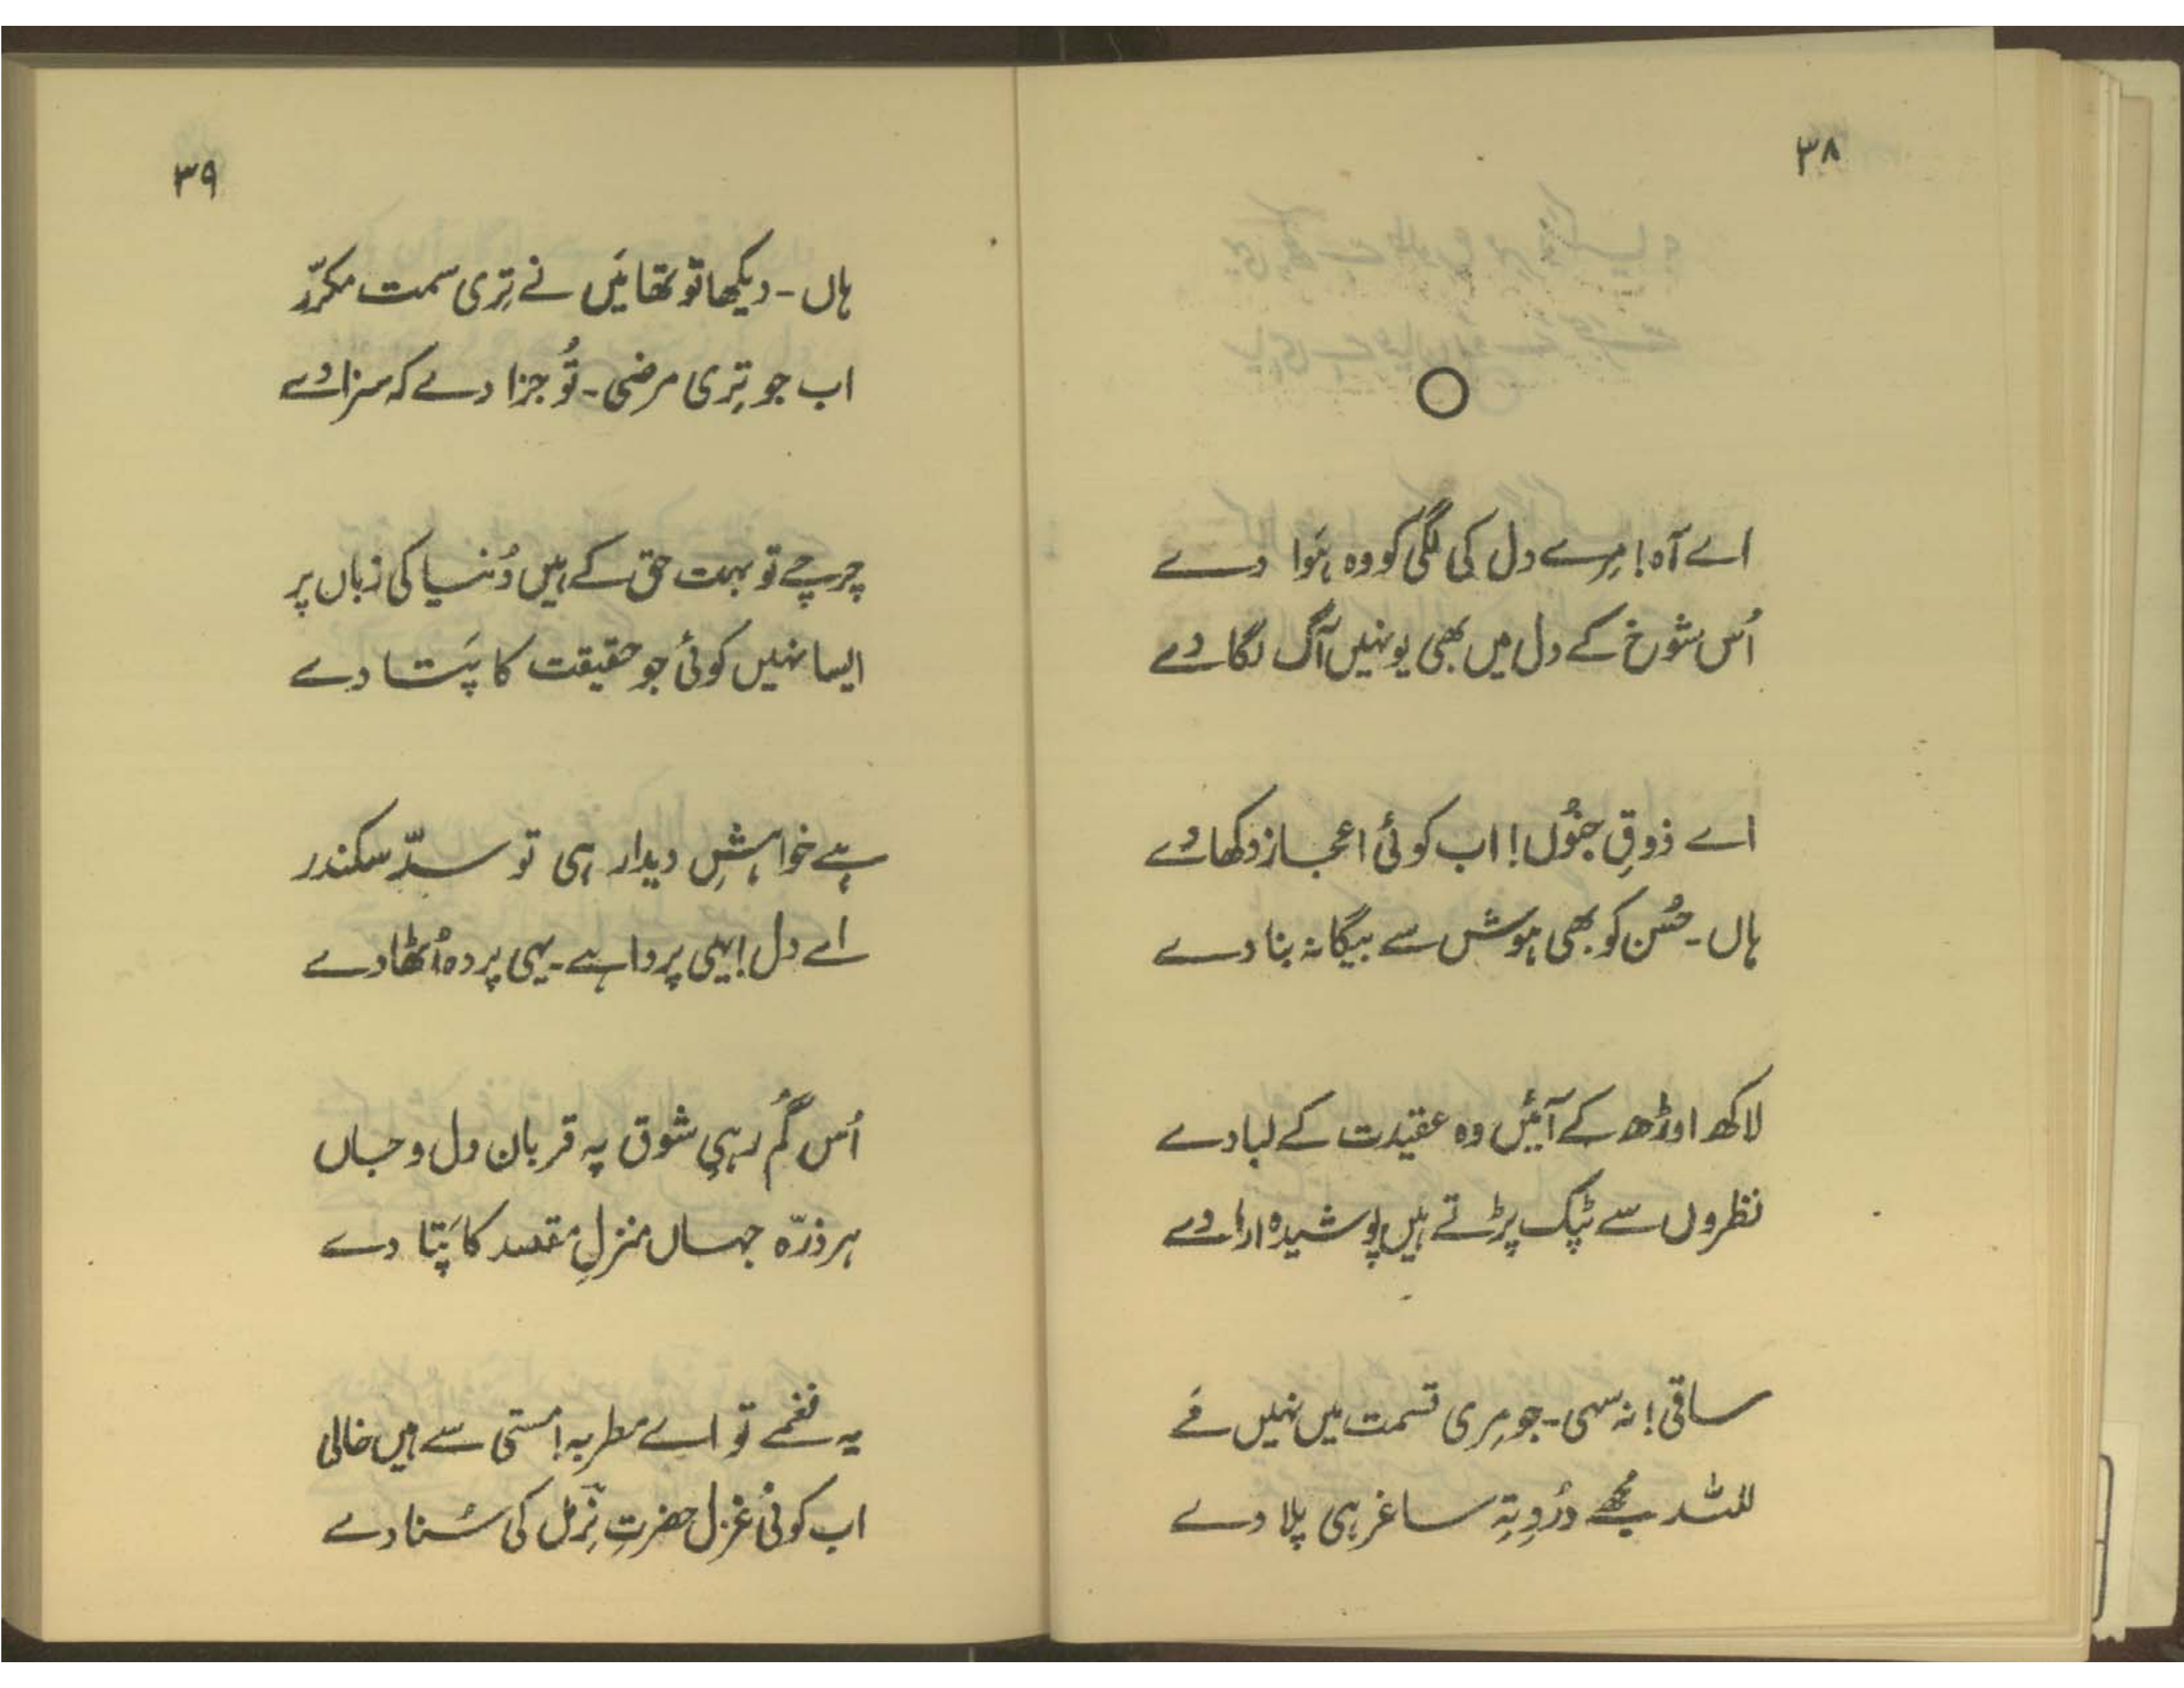 ۳۸
اے آہ! مِرے دل کی لگی کو وہ ہَوا دے
اُس شوخ کے دل میں بھی یونہیں آگ لگا دے
اے ذوقِ جنُوں! اب کوئی اعجاز دکھا دے
ہاں۔ حُسن کو بھی ہوش سے بیگانہ بنا دے
لاکھ اوڑھ کے آئیں وہ عقیدت کے لبادے
نظروں سے ٹپک پڑتے ہیں پوشیدہ ارادے
ساقی! نہ سہی۔ جو مِری قسمت میں نہیں مَے
للّٰہ مجھے دُردِ تہِ ساغر ہی پلا دے
۳۹
ہاں۔ دیکھا تو تھا مَیں نے تِری سمت مکرّر
اب جو تِری مرضی۔ تُو جزا دے کہ سزا دے
چرچے تو بہت حق کے ہیں دُنیا کی زباں پر
ایسا نہیں کوئی جو حقیقت کا پَتا دے
ہے خواہشِ دیدار ہی تو سدِّ سکندر
اے دل! یہی پردا ہے۔ یہی پردہ اُٹھا دے
اُس گُم رہیِ شوق پہ قربان دل و جاں
ہر ذرّہ جہاں منزلِ مقصد کا پَتا دے
یہ نغمے تو اے مطربہ! مستی سے ہیں خالی
اب کوئی غزل حضرتِ نِرمل کی سُنا دے